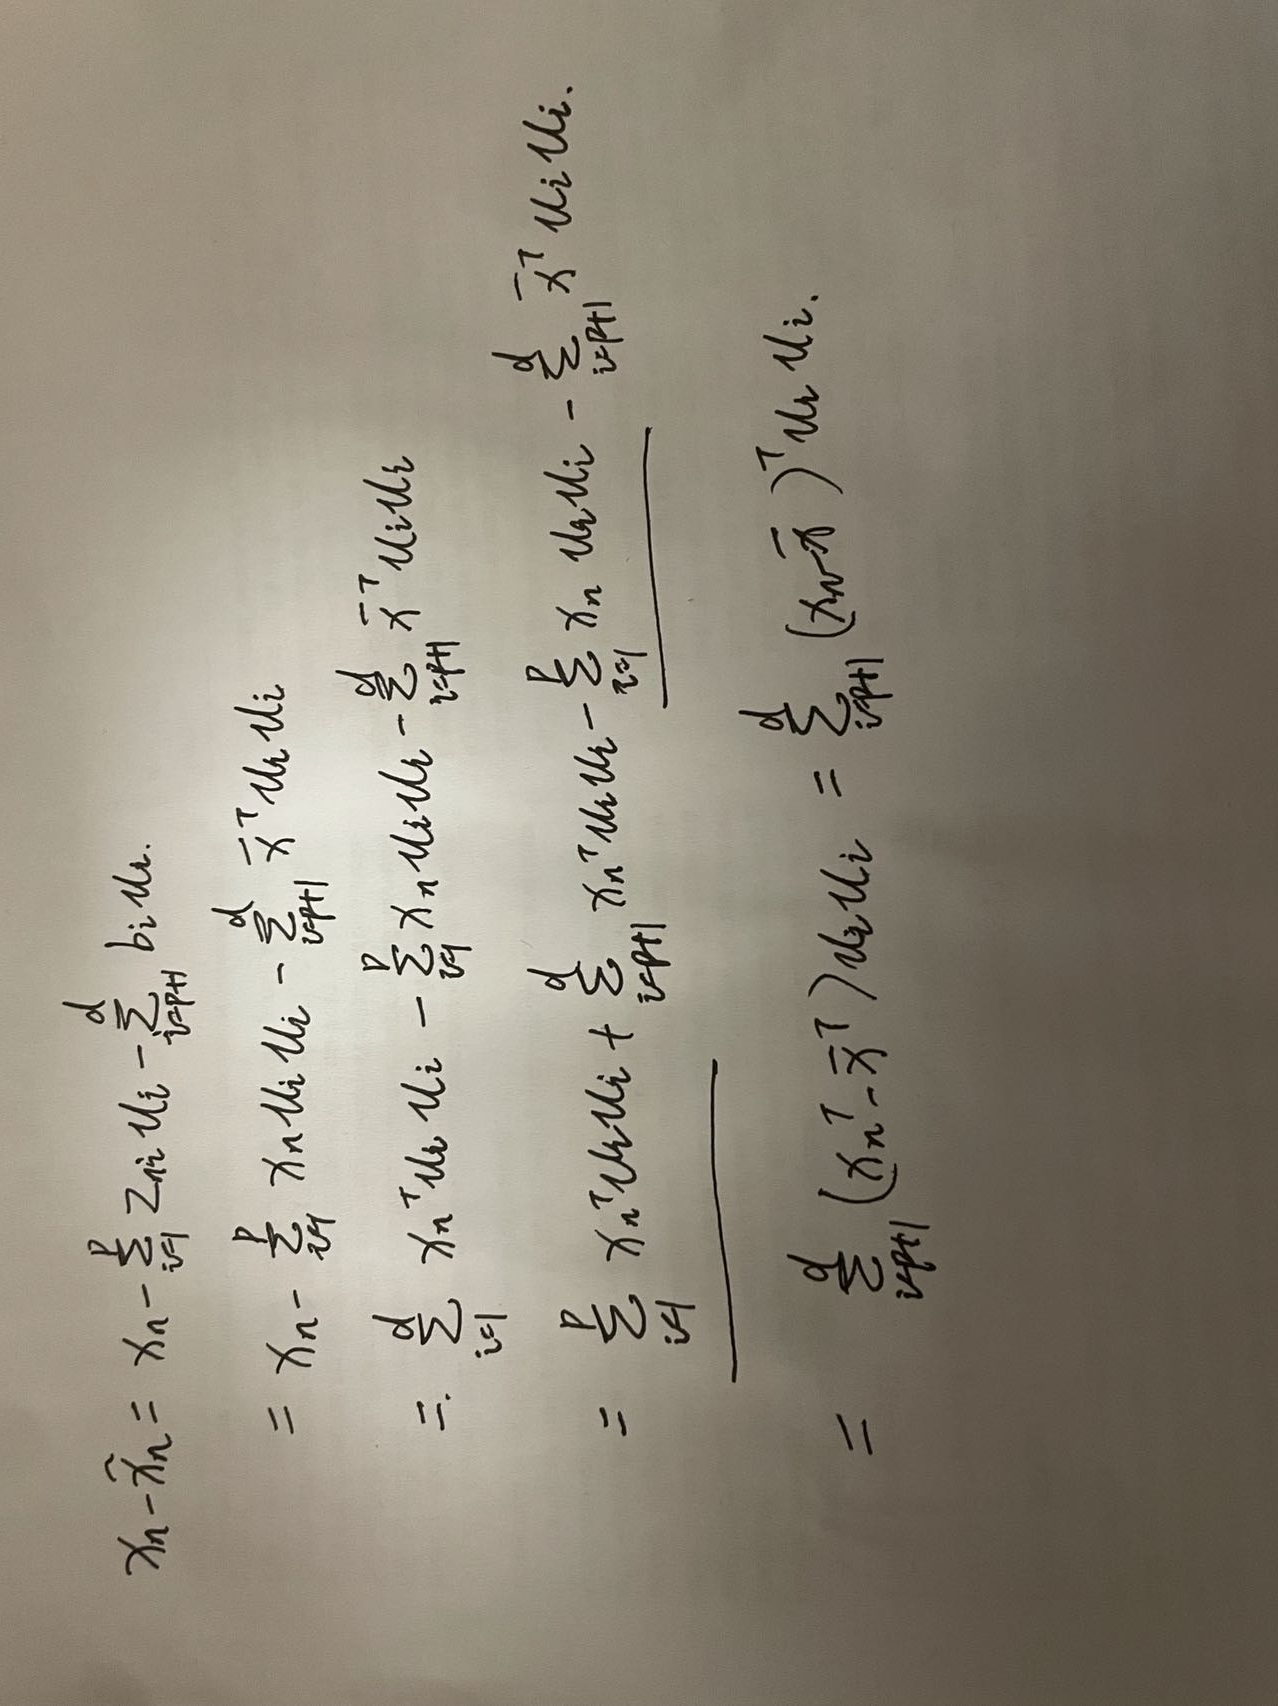 xₙ − x̃ₙ = xₙ − Σᵢ₌₁ᵖ zₙᵢ uᵢ − Σᵢ₌ₚ₊₁ᵈ bᵢ uᵢ.
= xₙ − Σᵢ₌₁ᵖ xₙ uᵢ uᵢ − Σᵢ₌ₚ₊₁ᵈ x̄ᵀ uᵢ uᵢ
=. Σᵢ₌₁ᵈ xₙᵀ uᵢ uᵢ − Σᵢ₌₁ᵖ xₙ uᵢ uᵢ − Σᵢ₌ₚ₊₁ᵈ x̄ᵀ uᵢ uᵢ
= Σᵢ₌₁ᵖ xₙᵀ uᵢ uᵢ + Σᵢ₌ₚ₊₁ᵈ xₙᵀ uᵢ uᵢ − Σᵢ₌₁ᵖ xₙ uᵢ uᵢ − Σᵢ₌ₚ₊₁ᵈ x̄ᵀ uᵢ uᵢ.
= Σᵢ₌ₚ₊₁ᵈ (xₙᵀ − x̄ᵀ) uᵢ uᵢ = Σᵢ₌ₚ₊₁ᵈ (xₙ − x̄)ᵀ uᵢ uᵢ.